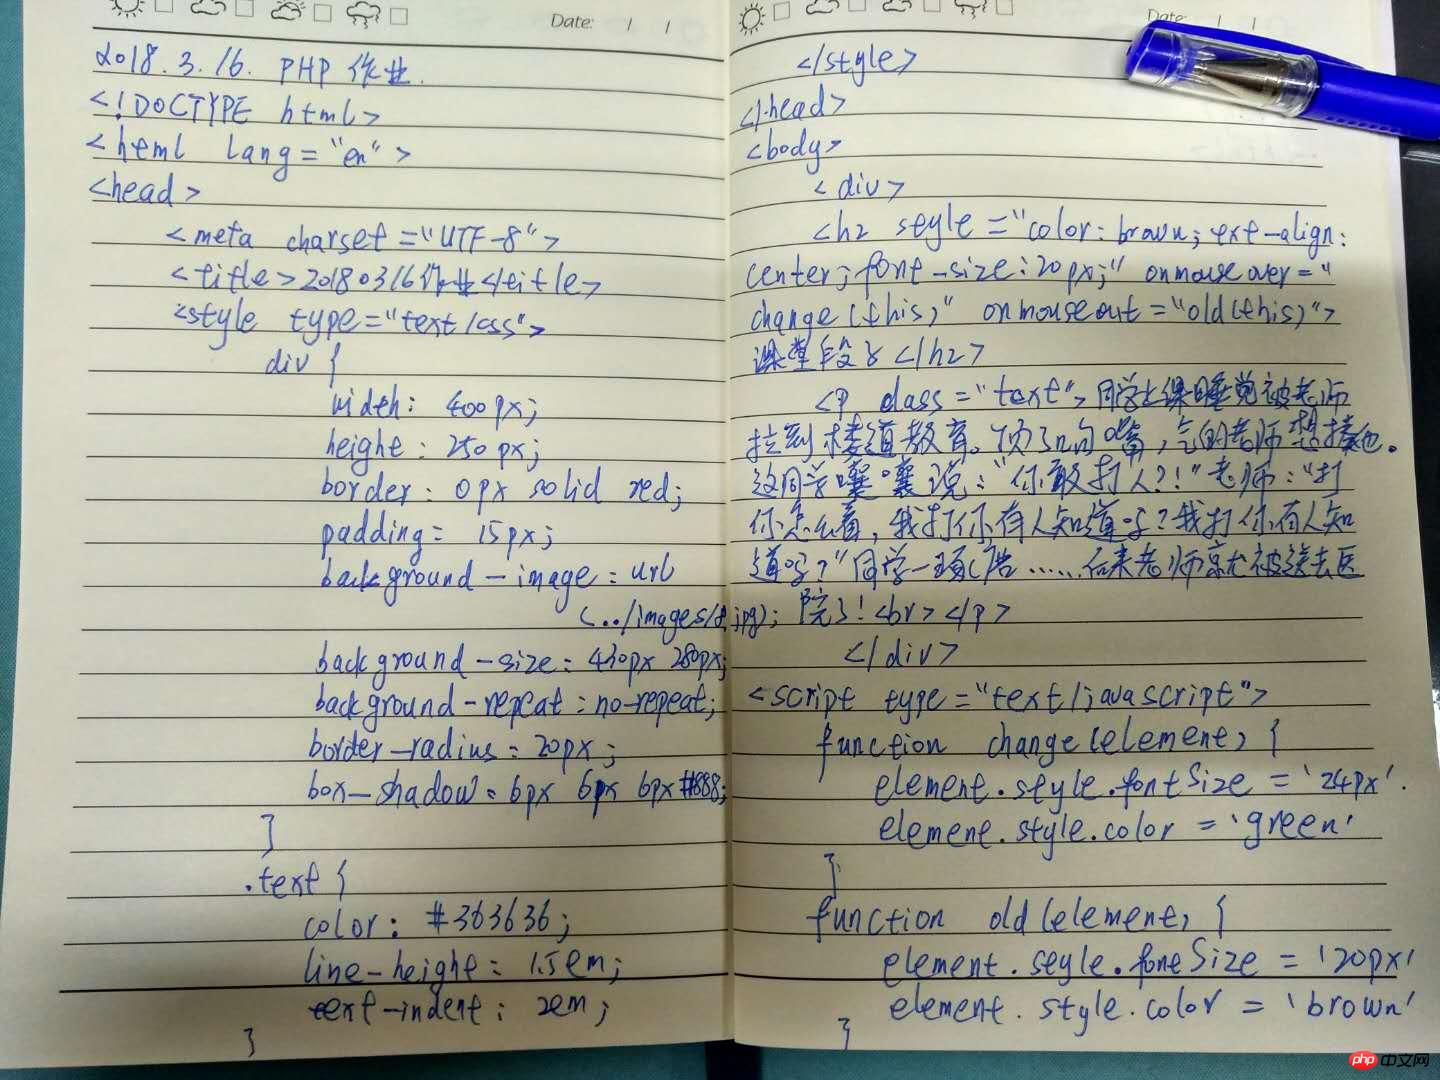 Date: / /
2018.3.16. PHP 作业.
<!DOCTYPE html>
<html lang="en">
<head>
<meta charset="UTF-8">
<title>20180316作业</title>
<style type="text/css">
div {
width: 400px;
height: 250px;
border: 0px solid red;
padding: 15px;
background-image: url
(../images/8.jpg);
background-size: 430px 280px;
background-repeat: no-repeat;
border-radius: 20px;
box-shadow: 6px 6px 6px #888;
}
.text {
color: #363636;
line-height: 1.5em;
text-indent: 2em;
}
Date: / /
</style>
</head>
<body>
<div>
<h2 style="color: brown; text-align:
center; font-size: 20px;" onmouseover="
change(this)" onmouseout="old(this)">
课堂段子</h2>
<p class="text">同学上课睡觉被老师
拉到楼道教育。顶了几句嘴,气的老师想揍他。
这同学嚷嚷说:"你敢打人?!"老师:"打
你怎么着,我打你有人知道吗?我打你有人知
道吗?"同学一顿......后来老师就被送去医
院了!<br></p>
</div>
<script type="text/javascript">
function change(element) {
element.style.fontSize = '24px'
element.style.color = 'green'
}
function old(element) {
element.style.fontSize = '20px'
element.style.color = 'brown'
}
php中文网